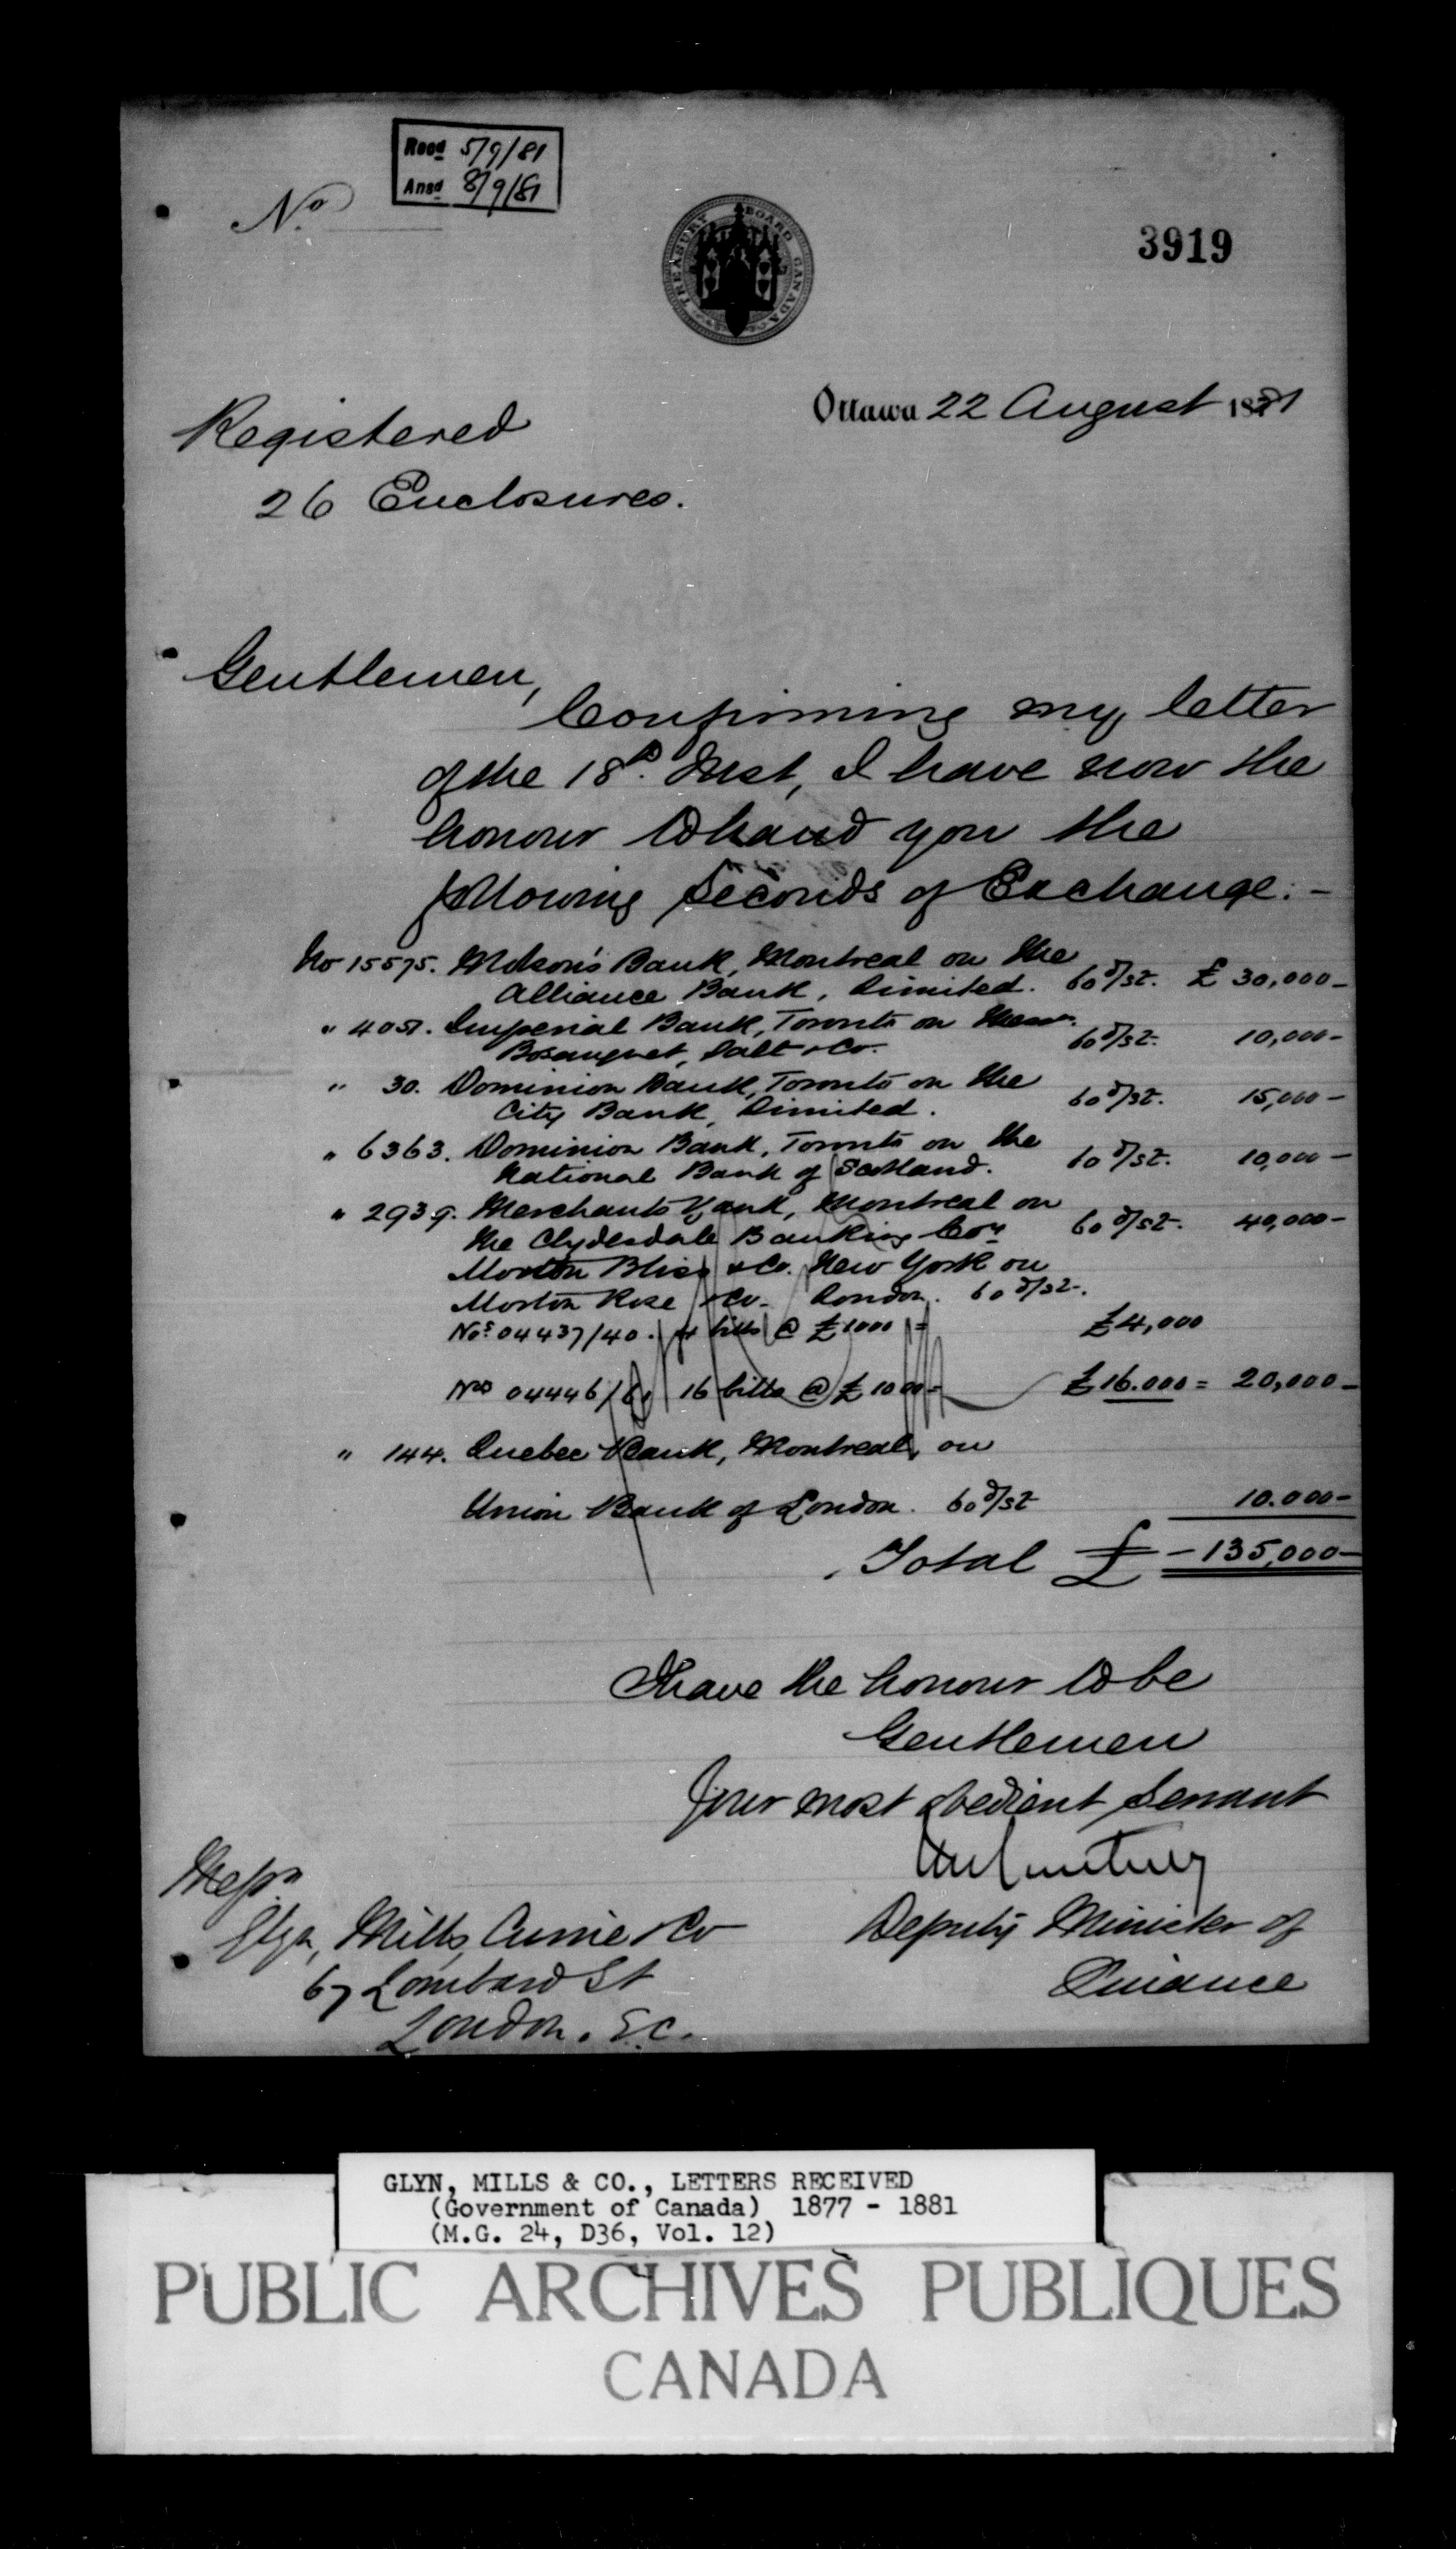 Recd 5/9/81
Ansd 8/9/81
No.
TREASURY BOARD CANADA
3919
Ottawa 22 August 1881
Registered
26 Enclosures.
Gentlemen,
Confirming my letter
of the 18th. Inst, I have now the
honour to hand you the
following Seconds of Exchange:-
No 15575. Molson's Bank, Montreal on the
Alliance Bank, Limited. 60 d/st. £ 30,000-
" 4051. Imperial Bank, Toronto on Messrs.
Bosanquet, Salt & Co. 60 d/st. 10,000-
" 30. Dominion Bank, Toronto on the
City Bank, Limited. 60 d/st. 15,000-
" 6363. Dominion Bank, Toronto on the
National Bank of Scotland. 60 d/st. 10,000-
" 2939. Merchants Bank, Montreal on
the Clydesdale Banking Coy 60 d/st. 40,000-
Morton Bliss & Co. New York on
Morton Rose & Co. London. 60 d/st.
Nos 04437/40. 4 bills @ £1000 = £4,000
Nos 04446/61 16 bills @ £1000= £16.000 = 20,000-
" 144. Quebec Bank, Montreal, on
Union Bank of London. 60 d/st 10.000-
Total £ -135,000-
I have the honour to be
Gentlemen
Your most obedient Servant
Deputy Minister of
Finance
Messrs
Glyn, Mills, Currie & Co
67 Lombard St
London. E.C.
GLYN, MILLS & CO., LETTERS RECEIVED
(Government of Canada) 1877 - 1881
(M.G. 24, D36, Vol. 12)
PUBLIC ARCHIVES PUBLIQUES
CANADA